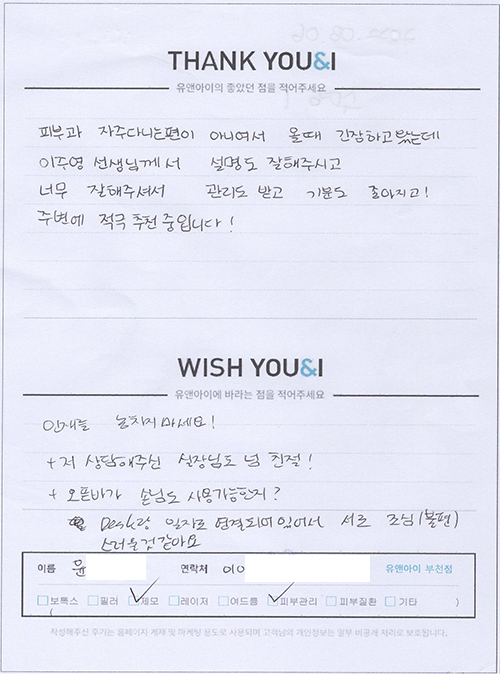 THANK YOU&I
유앤아이의 좋았던 점을 적어주세요
피부과 자주다니는편이 아니여서 올때 긴장하고 왔는데
이주영 선생님께서 설명도 잘해주시고
너무 잘해주셔서 관리도 받고 기분도 좋아지고!
주변에 적극 추천 중입니다!
WISH YOU&I
유앤아이에 바라는 점을 적어주세요
인재를 놓치지마세요!
+ 저 상담해주신 실장님도 넘 친절!
+ 오픈바가 손님도 사용가능한지?
Desk랑 일자로 연결되어있어서 서로 조심(불편)
스러울것같아요
이름 윤 연락처 010 유앤아이 부천점
보톡스 필러 제모 레이저 여드름 피부관리 피부질환 기타 )
(
작성해주신 후기는 홈페이지 게재 및 마케팅 용도로 사용되며 고객님의 개인정보는 일부 비공개 처리로 보호됩니다.